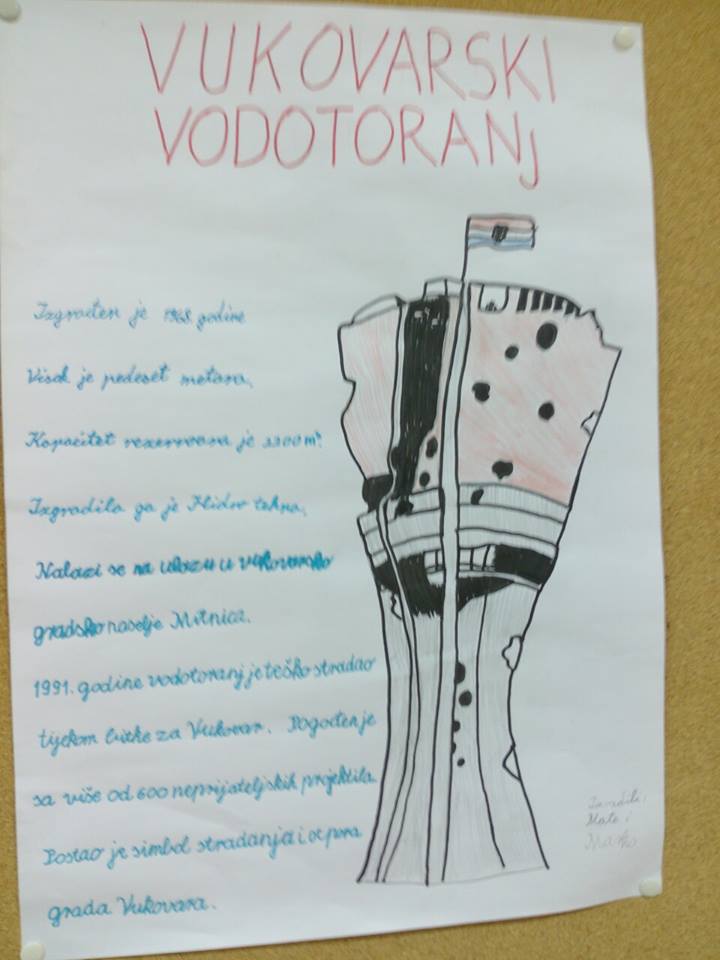 VUKOVARSKI
VODOTORANj
Izgrađen je 1968. godine
Visok je pedeset metara.
Kapacitet rezervoara je 2200 m³.
Izgradila ga je Hidrotehna.
Nalazi se na ulazu u vukovarsko
gradsko naselje Mitnica.
1991. godine vodotoranj je teško stradao
tijekom bitke za Vukovar. Pogođen je
sa više od 600 neprijateljskih projektila.
Postao je simbol stradanja i otpora
grada Vukovara.
Izradili:
Mate i
Marko